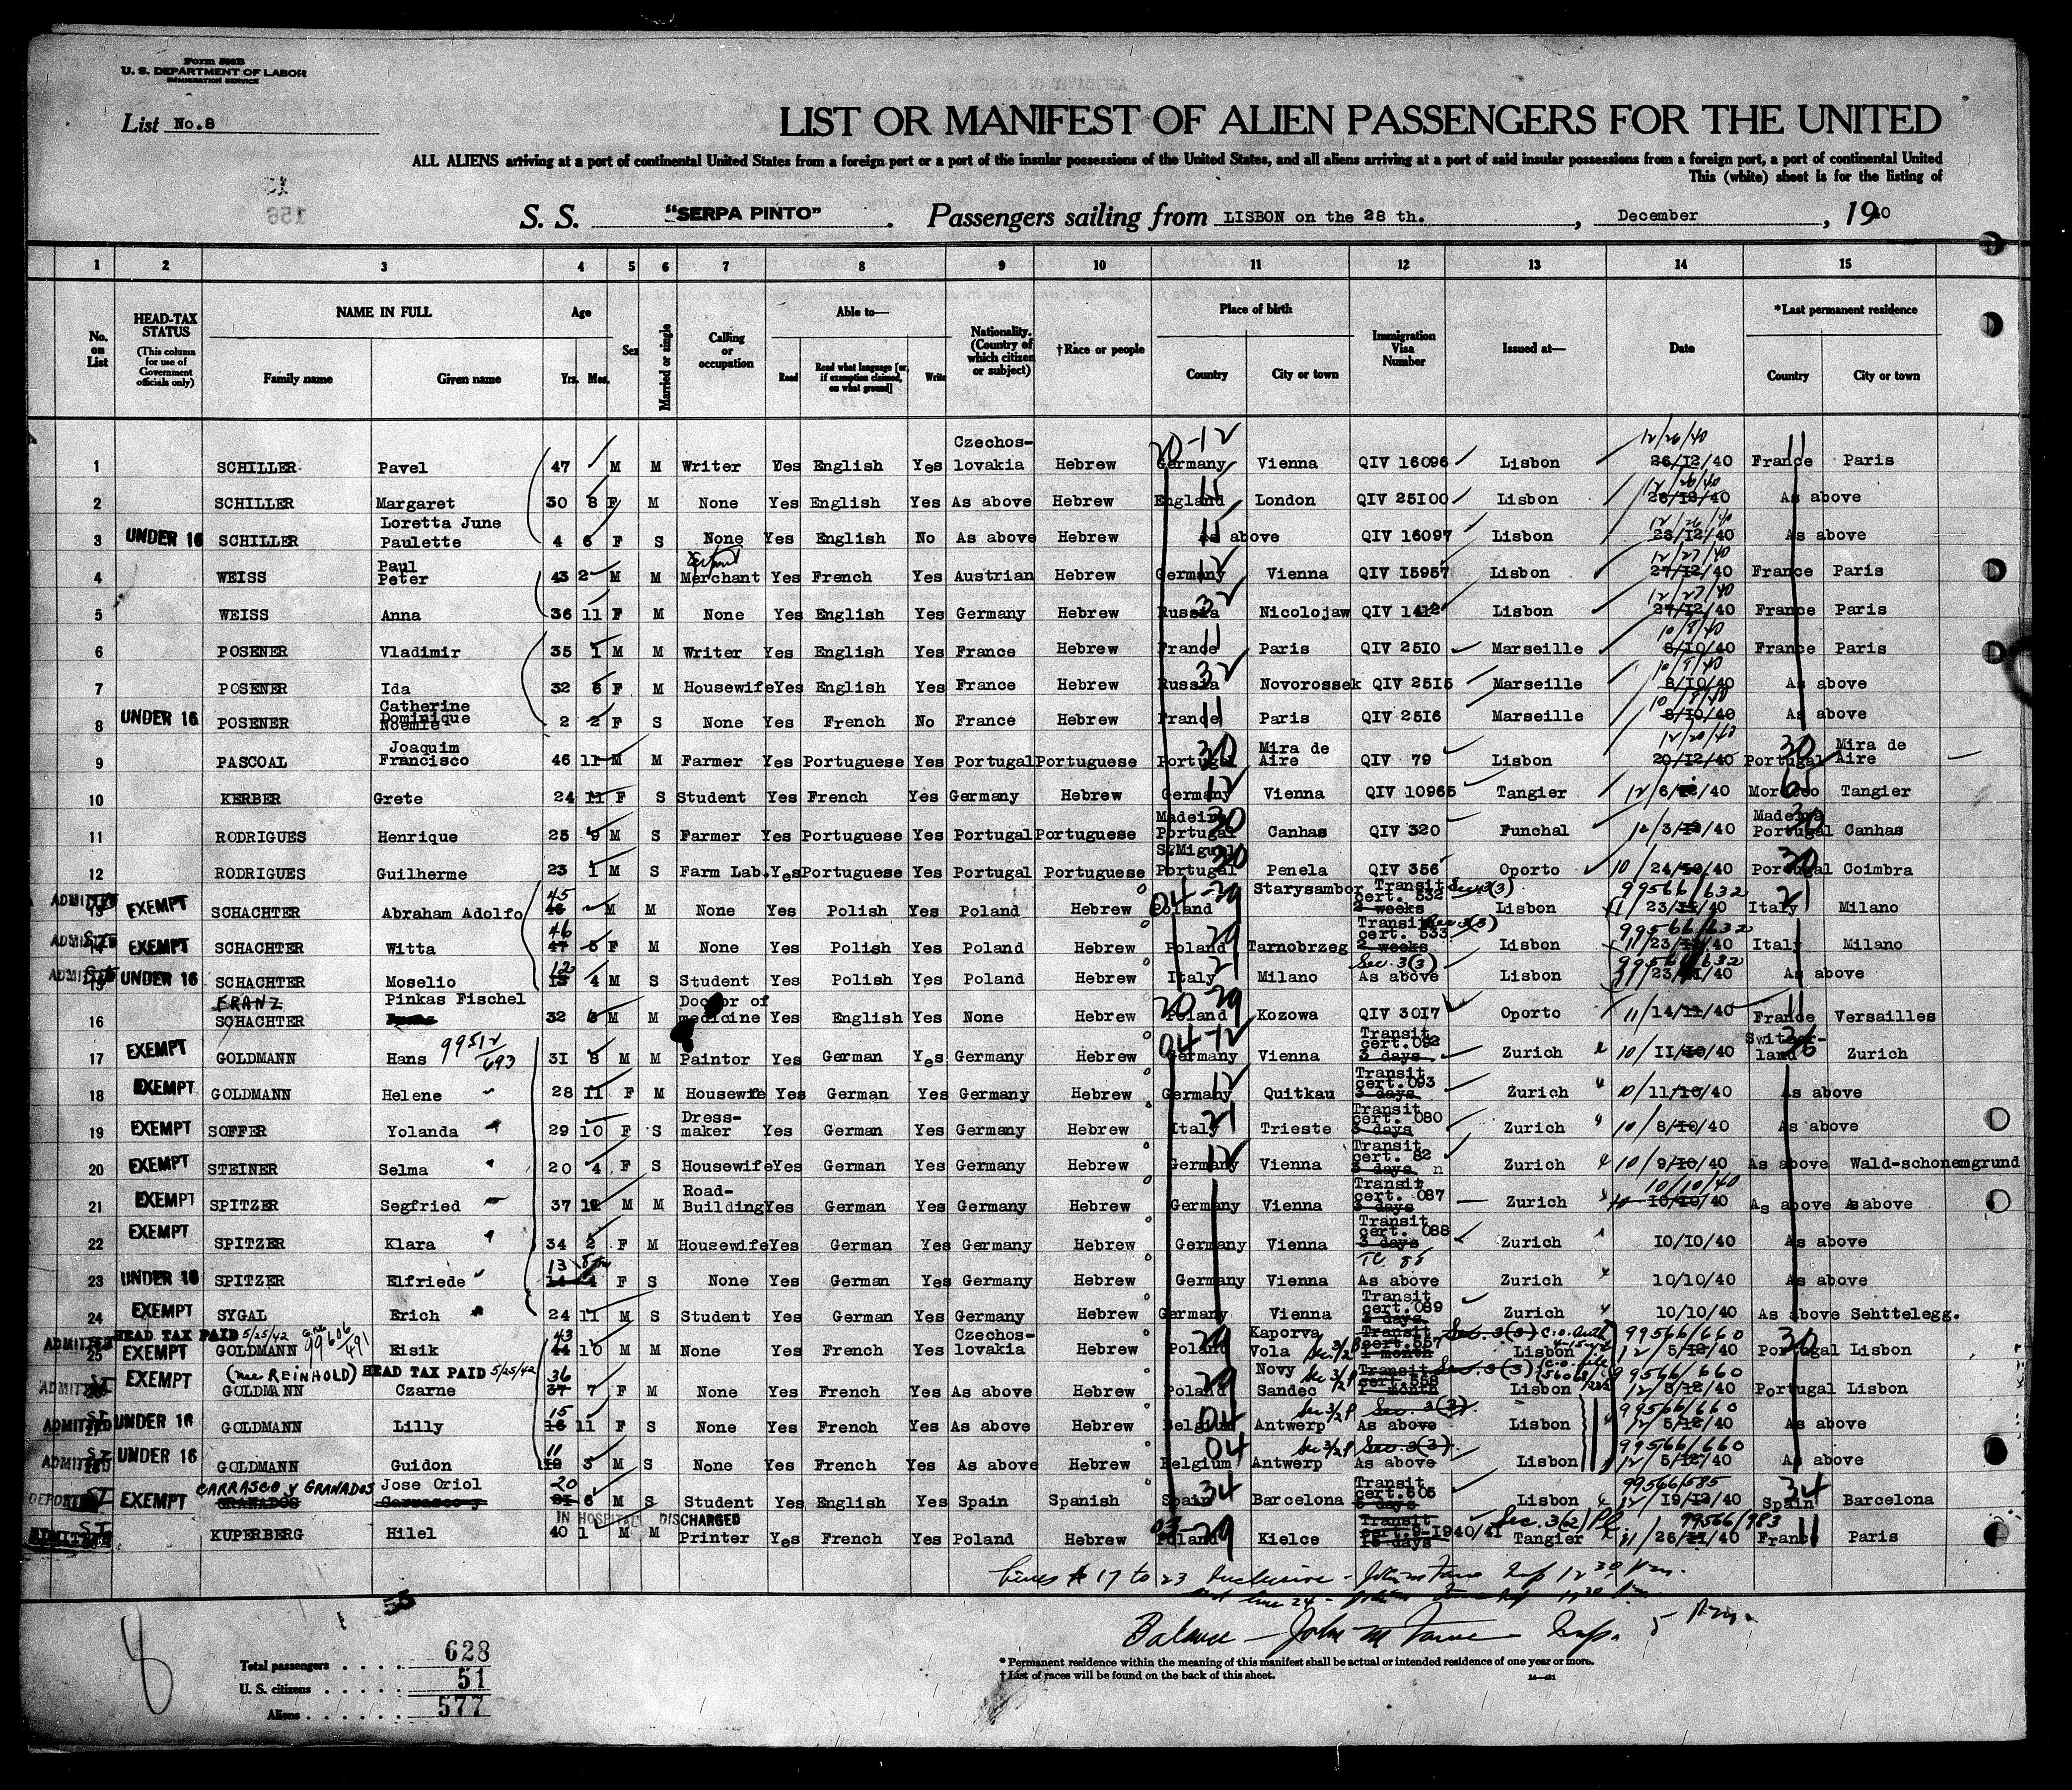 Form 500B
U. S. DEPARTMENT OF LABOR
IMMIGRATION SERVICE
List No.8
LIST OR MANIFEST OF ALIEN PASSENGERS FOR THE UNITED
ALL ALIENS arriving at a port of continental United States from a foreign port or a port of the insular possessions of the United States, and all aliens arriving at a port of said insular possessions from a foreign port, a port of continental United
This (white) sheet is for the listing of
156
S. S. "SERPA PINTO". Passengers sailing from LISBON on the 28 th., December, 1940
1 2 3 4 5 6 7 8 9 10 11 12 13 14 15
No. on List
HEAD-TAX STATUS (This column for use of Government officials only)
NAME IN FULL Family name Given name
Age Yrs. Mos.
Sex
Married or single
Calling or occupation
Able to— Read Read what language [or, if exemption claimed, on what ground] Write
Nationality. (Country of which citizen or subject)
†Race or people
Place of birth Country City or town
Immigration Visa Number
Issued at—
Date
*Last permanent residence Country City or town
1 SCHILLER Pavel 47 M M Writer Yes English Yes Czechos-lovakia Hebrew 20-12 Germany Vienna QIV 16096 Lisbon 12/26/40 26/12/40 France Paris
2 SCHILLER Margaret 30 8 F M None Yes English Yes As above Hebrew England London QIV 25100 Lisbon 12/26/40 26/12/40 As above
3 UNDER 16 SCHILLER Loretta June Paulette 4 6 F S None Yes English No As above Hebrew As above QIV 16097 Lisbon 12/26/40 26/12/40 As above
4 WEISS Paul Peter 43 2 M M Merchant Yes French Yes Austrian Hebrew Germany 12 Vienna QIV 15957 Lisbon 12/27/40 27/12/40 France Paris
5 WEISS Anna 36 11 F M None Yes English Yes Germany Hebrew Russia 32 Nicolojaw QIV 1412 Lisbon 12/27/40 27/12/40 France Paris
6 POSENER Vladimir 35 1 M M Writer Yes English Yes France Hebrew France 11 Paris QIV 2510 Marseille 10/8/40 8/10/40 France Paris
7 POSENER Ida 32 6 F M Housewife Yes English Yes France Hebrew Russia 32 Novorossek QIV 2515 Marseille 8/10/40 As above
8 UNDER 16 POSENER Catherine Dominique Noemie 2 2 F S None Yes French No France Hebrew France 11 Paris QIV 2516 Marseille 10/8/40 8/10/40 As above
9 PASCOAL Joaquim Francisco 46 11 M M Farmer Yes Portuguese Yes Portugal Portuguese Portugal 30 Mira de Aire QIV 79 Lisbon 12/20/40 20/12/40 Portugal 30 Mira de Aire
10 KERBER Grete 24 11 F S Student Yes French Yes Germany Hebrew Germany 12 Vienna QIV 10965 Tangier 12/6/12/40 Morocco 65 Tangier
11 RODRIGUES Henrique 25 9 M S Farmer Yes Portuguese Yes Portugal Portuguese Madeira Portugal 30 Canhas QIV 320 Funchal 12/3/12/40 Madeira Portugal 30 Canhas
12 RODRIGUES Guilherme 23 1 M S Farm Lab. Yes Portuguese Yes Portugal Portuguese S.Miguel Portugal 30 Penela QIV 356 Oporto 10/24/10/40 Portugal 30 Coimbra
ADMITTED 13 EXEMPT SCHACHTER Abraham Adolfo 45 M M None Yes Polish Yes Poland Hebrew 04-29 Poland Starysambor Transit cert. 532 2 weeks Sec 3(3) Lisbon 99566/632 11/23/11/40 Italy 21 Milano
ADMITTED 14 EXEMPT SCHACHTER Witta 46 47 5 F M None Yes Polish Yes Poland Hebrew Poland 29 Tarnobrzeg Transit cert. 533 2 weeks Sec 3(3) Lisbon 99566/632 11/23/11/40 Italy Milano
ADMITTED 15 UNDER 16 SCHACHTER Moselio 12 13 4 M S Student Yes Polish Yes Poland Hebrew Italy 21 Milano Sec. 3(3) As above Lisbon 99566/632 11/23/11/40 As above
16 FRANZ SCHACHTER Pinkas Fischel 32 M M Doctor of medicine Yes English Yes None Hebrew 20-29 Poland Kozowa QIV 3017 Oporto 11/14/11/40 France 11 Versailles
17 EXEMPT GOLDMANN Hans 99512/693 31 8 M M Paintor Yes German Yes Germany Hebrew 04-12 Germany Vienna Transit cert. 092 3 days Zurich 10/11/10/40 Switzer-land Zurich
18 EXEMPT GOLDMANN Helene 28 11 F M Housewife Yes German Yes Germany Hebrew Germany 12 Quitkau Transit cert. 093 3 days Zurich 10/11/10/40 As above
19 EXEMPT SOFFER Yolanda 29 10 F S Dress-maker Yes German Yes Germany Hebrew Italy 21 Trieste Transit cert. 080 3 days Zurich 10/8/10/40 As above
20 EXEMPT STEINER Selma 20 4 F S Housewife Yes German Yes Germany Hebrew Germany 12 Vienna Transit cert. 82 3 days Zurich 10/9/10/40 As above Wald-schonemgrund
21 EXEMPT SPITZER Segfried 37 M M Road-Building Yes German Yes Germany Hebrew Germany Vienna Transit cert. 087 3 days Zurich 10/10/40 10/10/40 As above As above
22 EXEMPT SPITZER Klara 34 2 F M Housewife Yes German Yes Germany Hebrew Germany Vienna Transit cert. 088 3 days Zurich 10/10/40 As above
23 UNDER 16 SPITZER Elfriede 13 14 4 F S None Yes German Yes Germany Hebrew Germany Vienna TC 85 As above Zurich 10/10/40 As above
24 EXEMPT SYGAL Erich 24 11 M S Student Yes German Yes Germany Hebrew Germany Vienna Transit cert. 089 3 days Zurich 10/10/40 As above Sehttelegg.
ADMITTED 25 HEAD TAX PAID 5/25/42 EXEMPT GOLDMANN 99606/491 Eisik 43 44 10 M M None Yes French Yes Czechos-lovakia Hebrew Poland 29 Kaporva Vola Transit cert. 557 1 month Sec. 3(3) Lisbon 99566/660 12/5/12/40 Portugal 30 Lisbon
ADMITTED EXEMPT (nee REINHOLD) HEAD TAX PAID 5/25/42 GOLDMANN Czarne 36 37 7 F M None Yes French Yes As above Hebrew Poland 29 Novy Sandec Transit cert 558 1 month Sec. 3(3) Lisbon 99566/660 12/5/12/40 Portugal Lisbon
ADMITTED 27 UNDER 16 GOLDMANN Lilly 15 16 11 F S None Yes French Yes As above Hebrew Belgium 04 Antwerp Sec 3/2P Sec. 3(3) As above Lisbon 99566/660 12/5/12/40 As above
ADMITTED 28 UNDER 16 GOLDMANN Guidon 11 3 M S None Yes French Yes As above Hebrew Belgium 04 Antwerp Sec 3/2P Sec. 3(3) As above Lisbon 99566/660 12/5/12/40 As above
DEPORTED EXEMPT CARRASCO y GRANADOS GRANADOS Jose Oriol Carrasco y 20 21 6 M S Student Yes English Yes Spain Spanish Spain 34 Barcelona Transit cert. 605 Lisbon 99566/585 12/19/12/40 Spain 34 Barcelona
IN HOSPITAL DISCHARGED
ADMITTED KUPERBERG Hilel 40 1 M M Printer Yes French Yes Poland Hebrew Poland 29 Kielce Transit cert. 9-1940/41 15 days Sec. 3(2) Tangier 99566/983 11/26/11/40 France 11 Paris
Lines # 17 to 23 Inclusive - John M Insp 12 30 Pm.
line 24 -
Balance - John M Insp. 5 Pm.
8
Total passengers 628
U. S. citizens 51
Aliens 577
* Permanent residence within the meaning of this manifest shall be actual or intended residence of one year or more.
† List of races will be found on the back of this sheet.